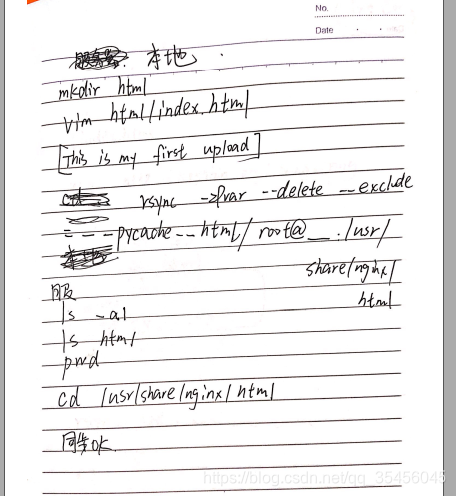 No.
Date
本地
mkdir html
vim html/index.html
[This is my first upload]
rsync -zlvar --delete --exclude
= - - pycache -- html/ root@__:/usr/
share/nginx/
html
服
ls -al
ls html
pwd
cd /usr/share/nginx/html
同步OK
https://blog.csdn.net/qq_35456045